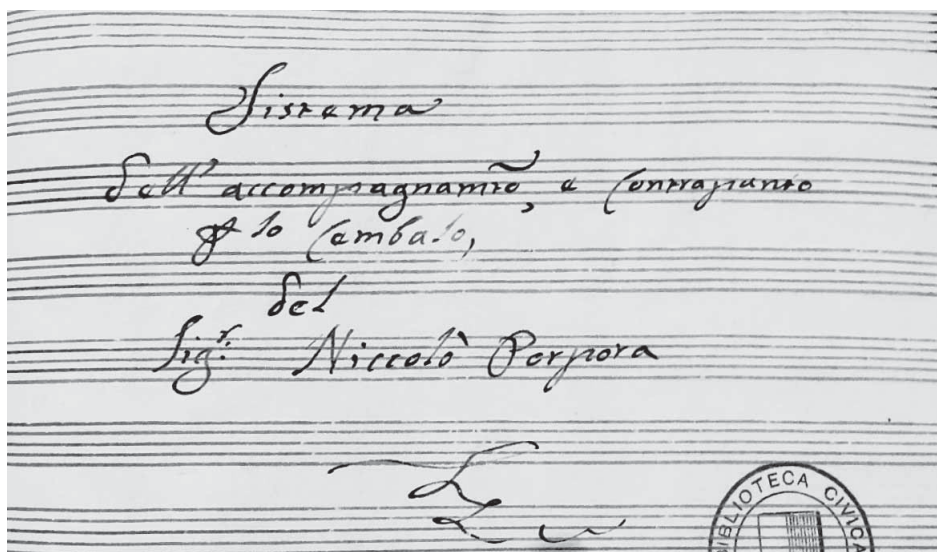 Sistema
dell' accompagnam̃to, e Contrapunto
p lo Cembalo,
del
Sig.r Niccolò Porpora
BIBLIOTECA CIVICA